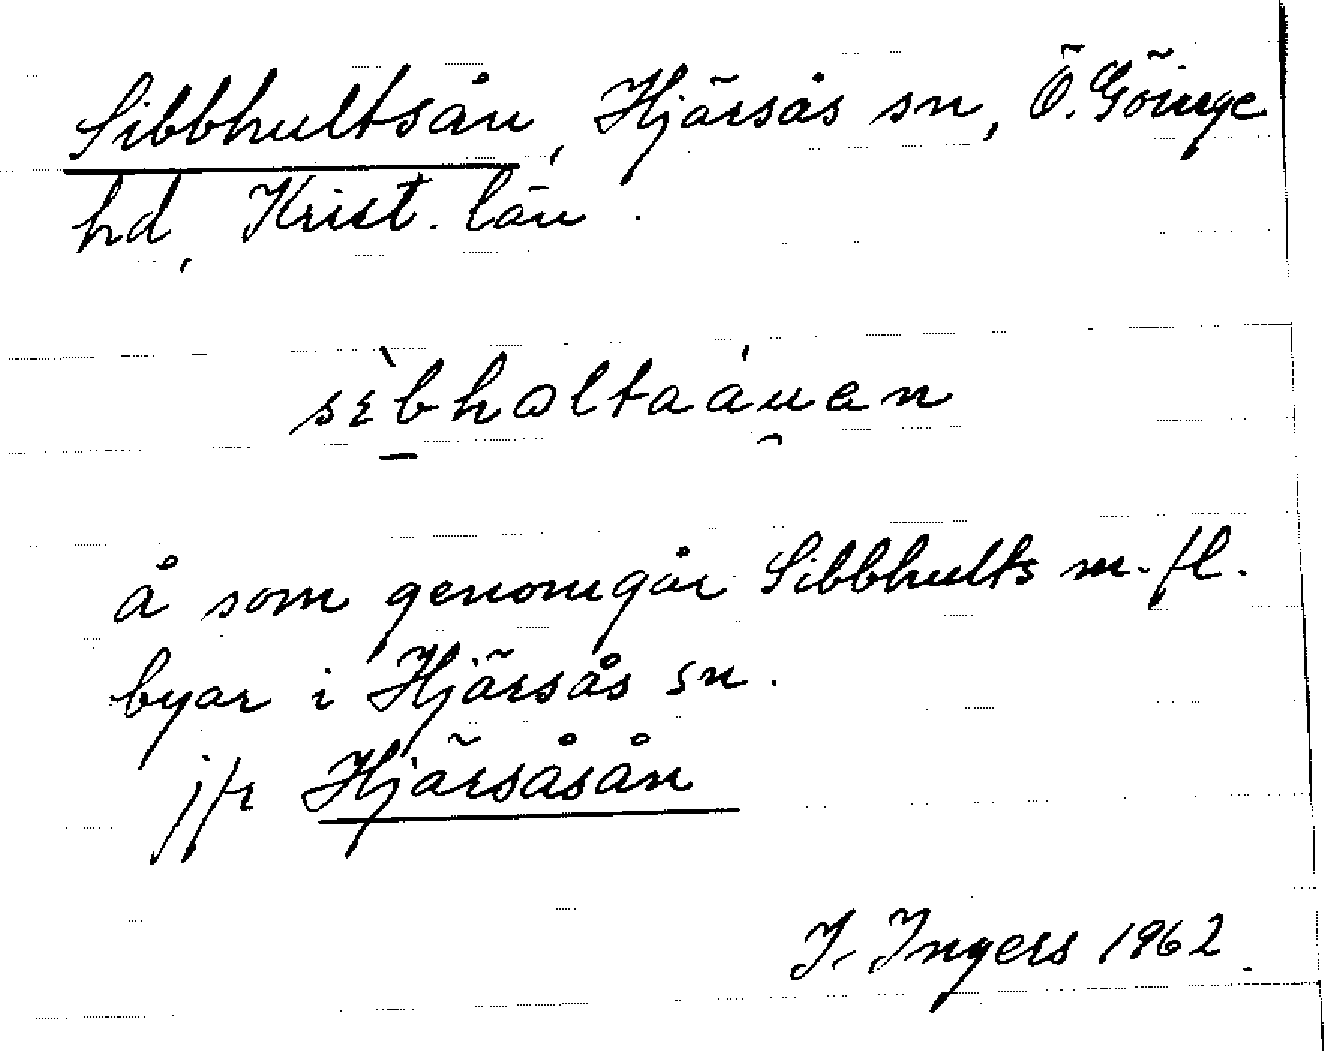 Sibbhultsån, Hjärsås sn, Ö. Göinge
hd, Krist. län.
sèbhɷltaáuan
å som genomgår Sibbhults m. fl.
byar i Hjärsås sn.
jfr Hjärsåsån
I. Ingers 1962.